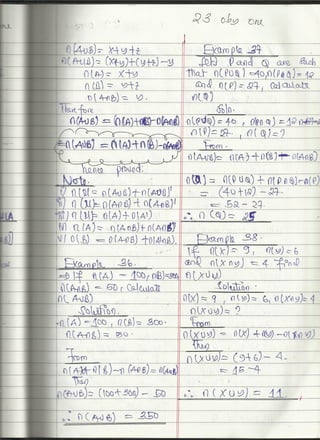 23 oby one
n(AuB) = x+y+z
n(AuB) = (x+y)+(y+z)-y
n(A) = x+y
n(B) = y+z
n(AnB) = y.
Therefore
n(AUB) = n(A)+n(B)-n(AnB)
n(AUB) = n(A)+n(B)-n(AnB)
hence proved:
Note.
i) n(U) = n(AUB)+n(AUB)'
ii) n(U) = n(AnB)+n(AnB)'
iii) n(U) = n(A)+n(A)'
iv) n(A) = n(AnB)+n(AnB)'
v) n(B) = n(AnB)+n(AnB).
Example 36.
If n(A) = 100, n(B)=300
n(AnB) = 50, Calculate
n(AUB)
Solution.
n(A) = 100, n(B) = 300.
n(AnB) = 50.
From
n(A)+n(B)-n(AnB) = n(AuB)
Then
n(AUB) = (100+300) - 50
∴ n(AUB) = 350
Example 37
If P and Q are such
that n(PUQ)=40, n(PnQ)=12
and n(P)=27, calculate
n(Q)
Soln.
n(PUQ)=40, n(PnQ)=12
n(P)=27, n(Q)=?
From.
n(AUB) = n(A)+n(B)-n(AnB)
n(Q) = n(PUQ)+n(PnQ)-n(P)
= (40+12)-27.
= 52-27.
∴ n(Q) = 25
Example 38.
If n(X)=9, n(Y)=6
and n(XnY)=4 find
n(XUY)
Solution.
n(X)=9, n(Y)=6, n(XnY)=4
n(XUY)=?
From
n(XUY) = n(X)+n(Y)-n(XnY)
Then
n(XUY) = (9+6)-4.
= 15-4
∴ n(XUY) = 11.